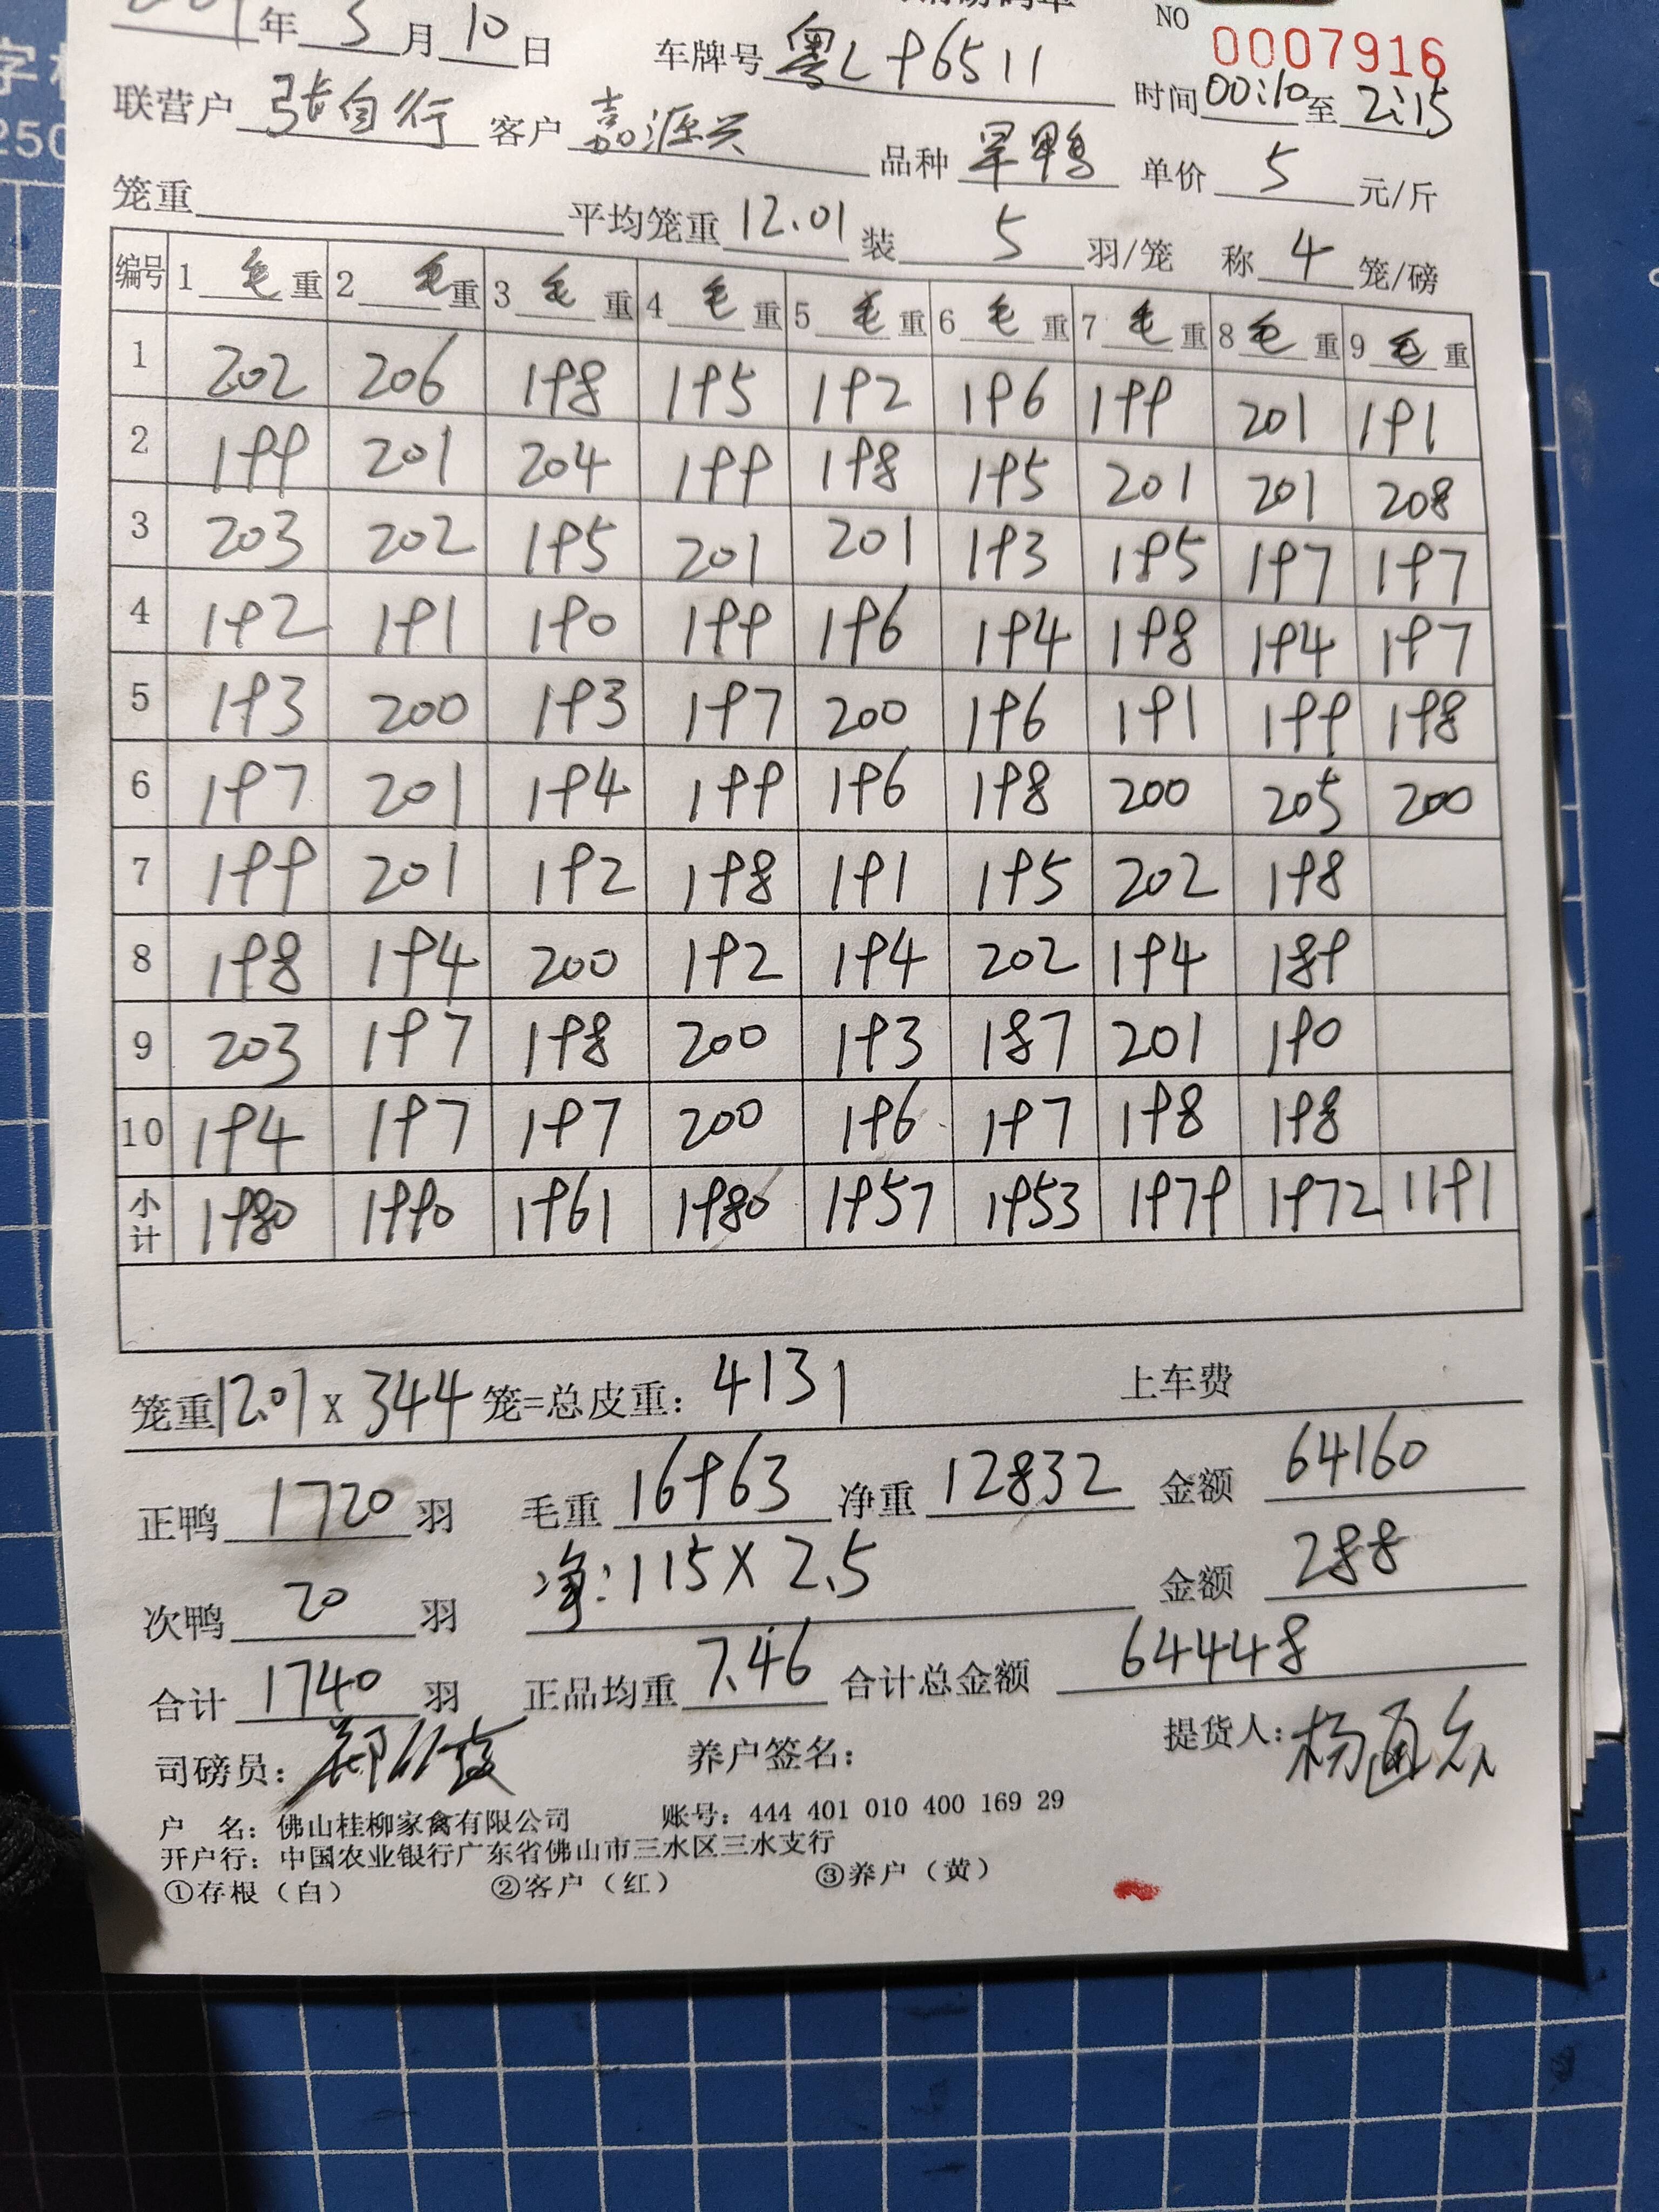 年 3 月 10 日 车牌号 粤L96511 NO 0007916
联营户 张自行 客户 嘉源兴 品种 旱鸭 时间 00:10 至 2:15
单价 5 元/斤
笼重 平均笼重 12.01 装 5 羽/笼 称 4 笼/磅
编号 1 毛 重 2 毛 重 3 毛 重 4 毛 重 5 毛 重 6 毛 重 7 毛 重 8 毛 重 9 毛 重
1 202 206 198 195 192 196 199 201 191
2 199 201 204 199 198 195 201 201 208
3 203 202 195 201 201 193 195 197 197
4 192 191 190 199 196 194 198 194 197
5 193 200 193 197 200 196 191 199 198
6 197 201 194 199 196 198 200 205 200
7 199 201 192 198 191 195 202 198
8 198 194 200 192 194 202 194 189
9 203 197 198 200 193 187 201 190
10 194 197 197 200 196 197 198 198
小计 1980 1990 1961 1980 1957 1953 1979 1972 1191
笼重 12.01 x 344 笼=总皮重: 4131 上车费
正鸭 1720 羽 毛重 16963 净重 12832 金额 64160
次鸭 20 羽 净:115X2.5 金额 288
合计 1740 羽 正品均重 7.46 合计总金额 64448
司磅员: 养户签名: 提货人: 杨通众
户 名: 佛山桂柳家禽有限公司 账号: 444 401 010 400 169 29
开户行: 中国农业银行广东省佛山市三水区三水支行
①存根（白） ②客户（红） ③养户（黄）